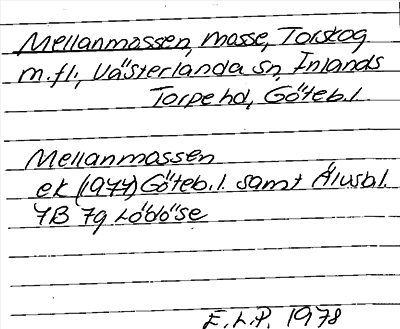 Mellanmossen, mosse, Torskog
m.fl., Västerlanda sn, Inlands
Torpe hd, Göteb.l.
Mellanmossen
ek (1977) Göteb.l. samt Älvsb.l.
7B 7g Lödöse
E.L.P. 1978